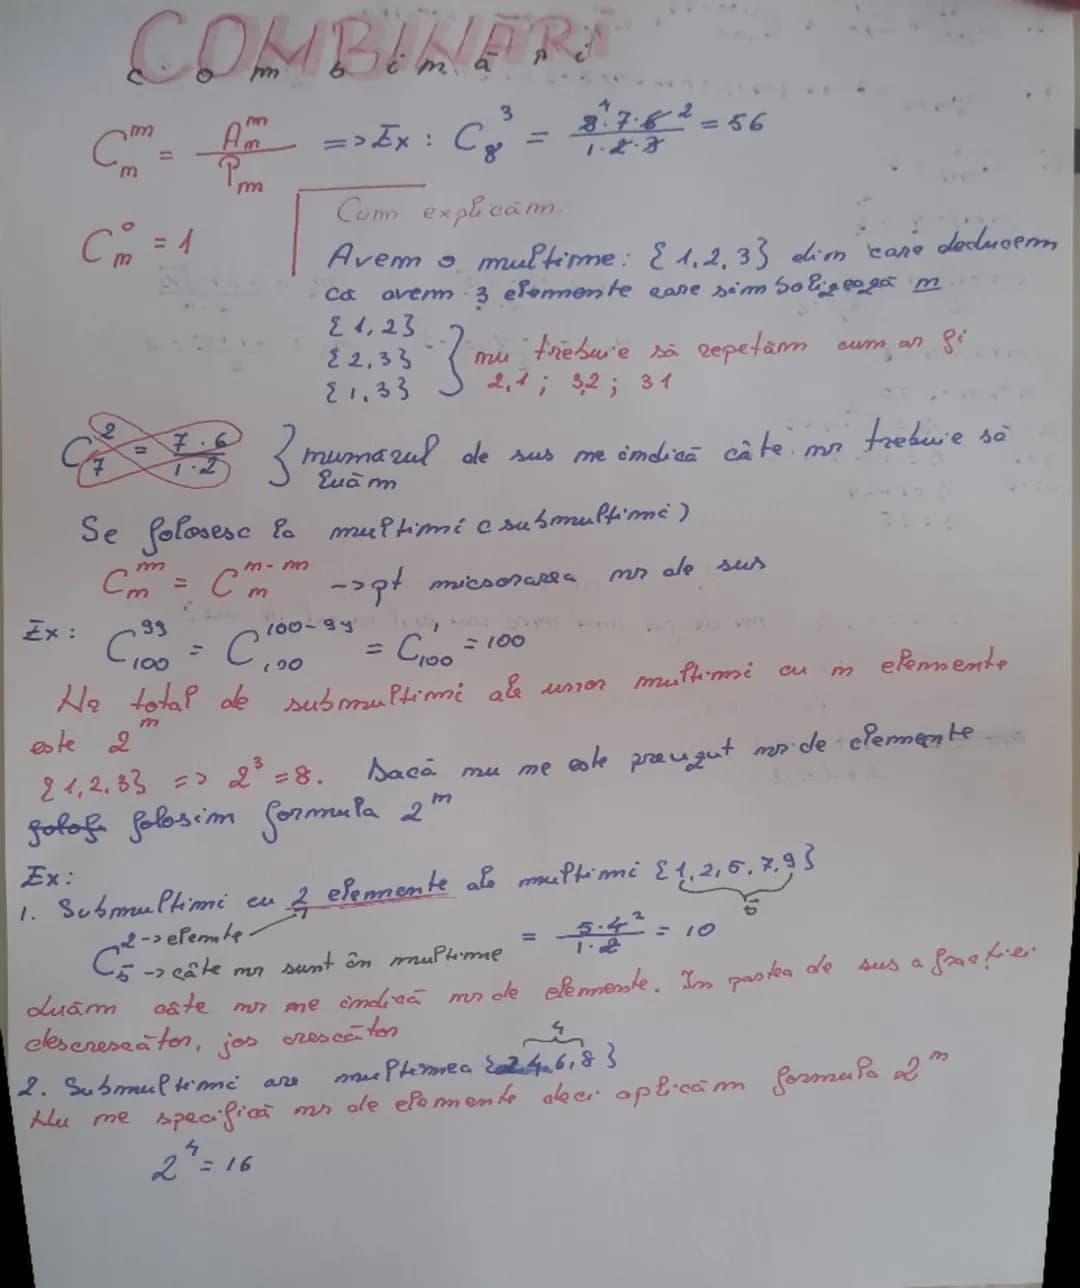 COMBINĂRI
c o m b i n ă r i
C_n^m = A_n^m / P_m => Ex: C_8^3 = 8·7·6 / 1·2·3 = 56
C_n^0 = 1
Cum explicăm:
Avem o multime: {1,2,3} din care deducem
că avem 3 elemente care simbolizează n
{1,2}
{2,3} } nu trebuie să repetăm cum ar fi
{1,3} 2,1; 3,2; 31
C_7^2 = 7·6 / 1·2 } numărul de sus ne indică câte nr trebuie să
luăm
Se folosesc la multimi (submultimi)
C_n^m = C_n^{n-m} -> pt micsorarea nr de sus
Ex: C_100^99 = C_100^{100-99} = C_100^1 = 100
Nr total de submultimi ale unor multimi cu n elemente
este 2^n
{1,2,3} => 2^3 = 8. Dacă nu ne este prevăzut nr de elemente
folosim formula 2^n
Ex:
1. Submultimi cu 2 elemente ale multimi {1,2,5,7,9}
5
C_5^2 -> elemnte = 5·4 / 1·2 = 10
-> câte nr sunt în multime
Luăm câte nr ne indică nr de elemente. În partea de sus a fractiei
descrescător, jos crescător
4
2. Submultimi are multimea {2,4,6,8}
Nu ne specifică nr de elemente deci aplicăm formula 2^n
2^4 = 16